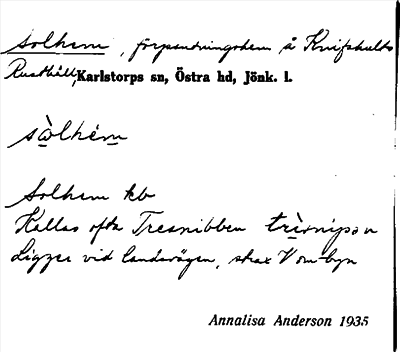 Solhem, förpantningshem å Knifshults
Rusthåll, Karlstorps sn, Östra hd, Jönk. l.
sòlhém
Solhem kb
Kallas ofta Tresnibben trèsnipən
Ligger vid landsvägen, strax V om byn
Annalisa Anderson 1935